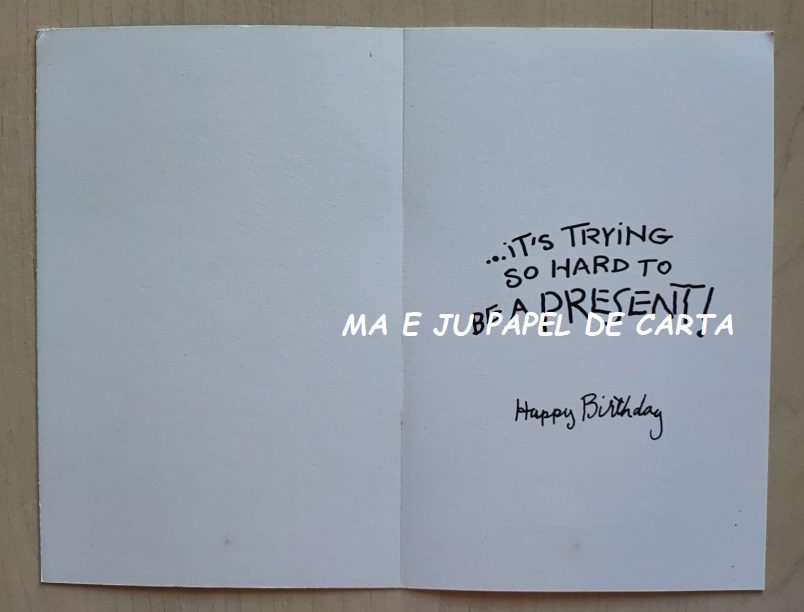 ...iT'S TRYiNG
SO HARD TO
BE A PRESENT!
MA E JU PAPEL DE CARTA
Happy Birthday